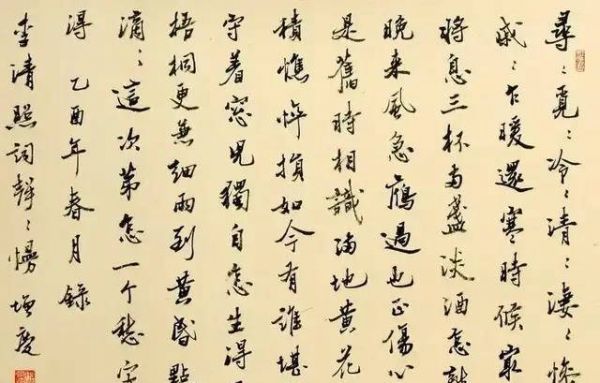 尋〻覓〻冷〻清〻淒〻惨
戚〻乍暖還寒時候最
將息三杯兩盞淡酒怎敵
晚来風急雁過也正傷心
是舊時相識滿地黄花
積憔悴損如今有誰堪
守着窓兒獨自怎生得
梧桐更兼細雨到黄昏點
滴〻這次第怎一个愁字
得 乙酉年春月録
李清照詞聲〻慢 增慶